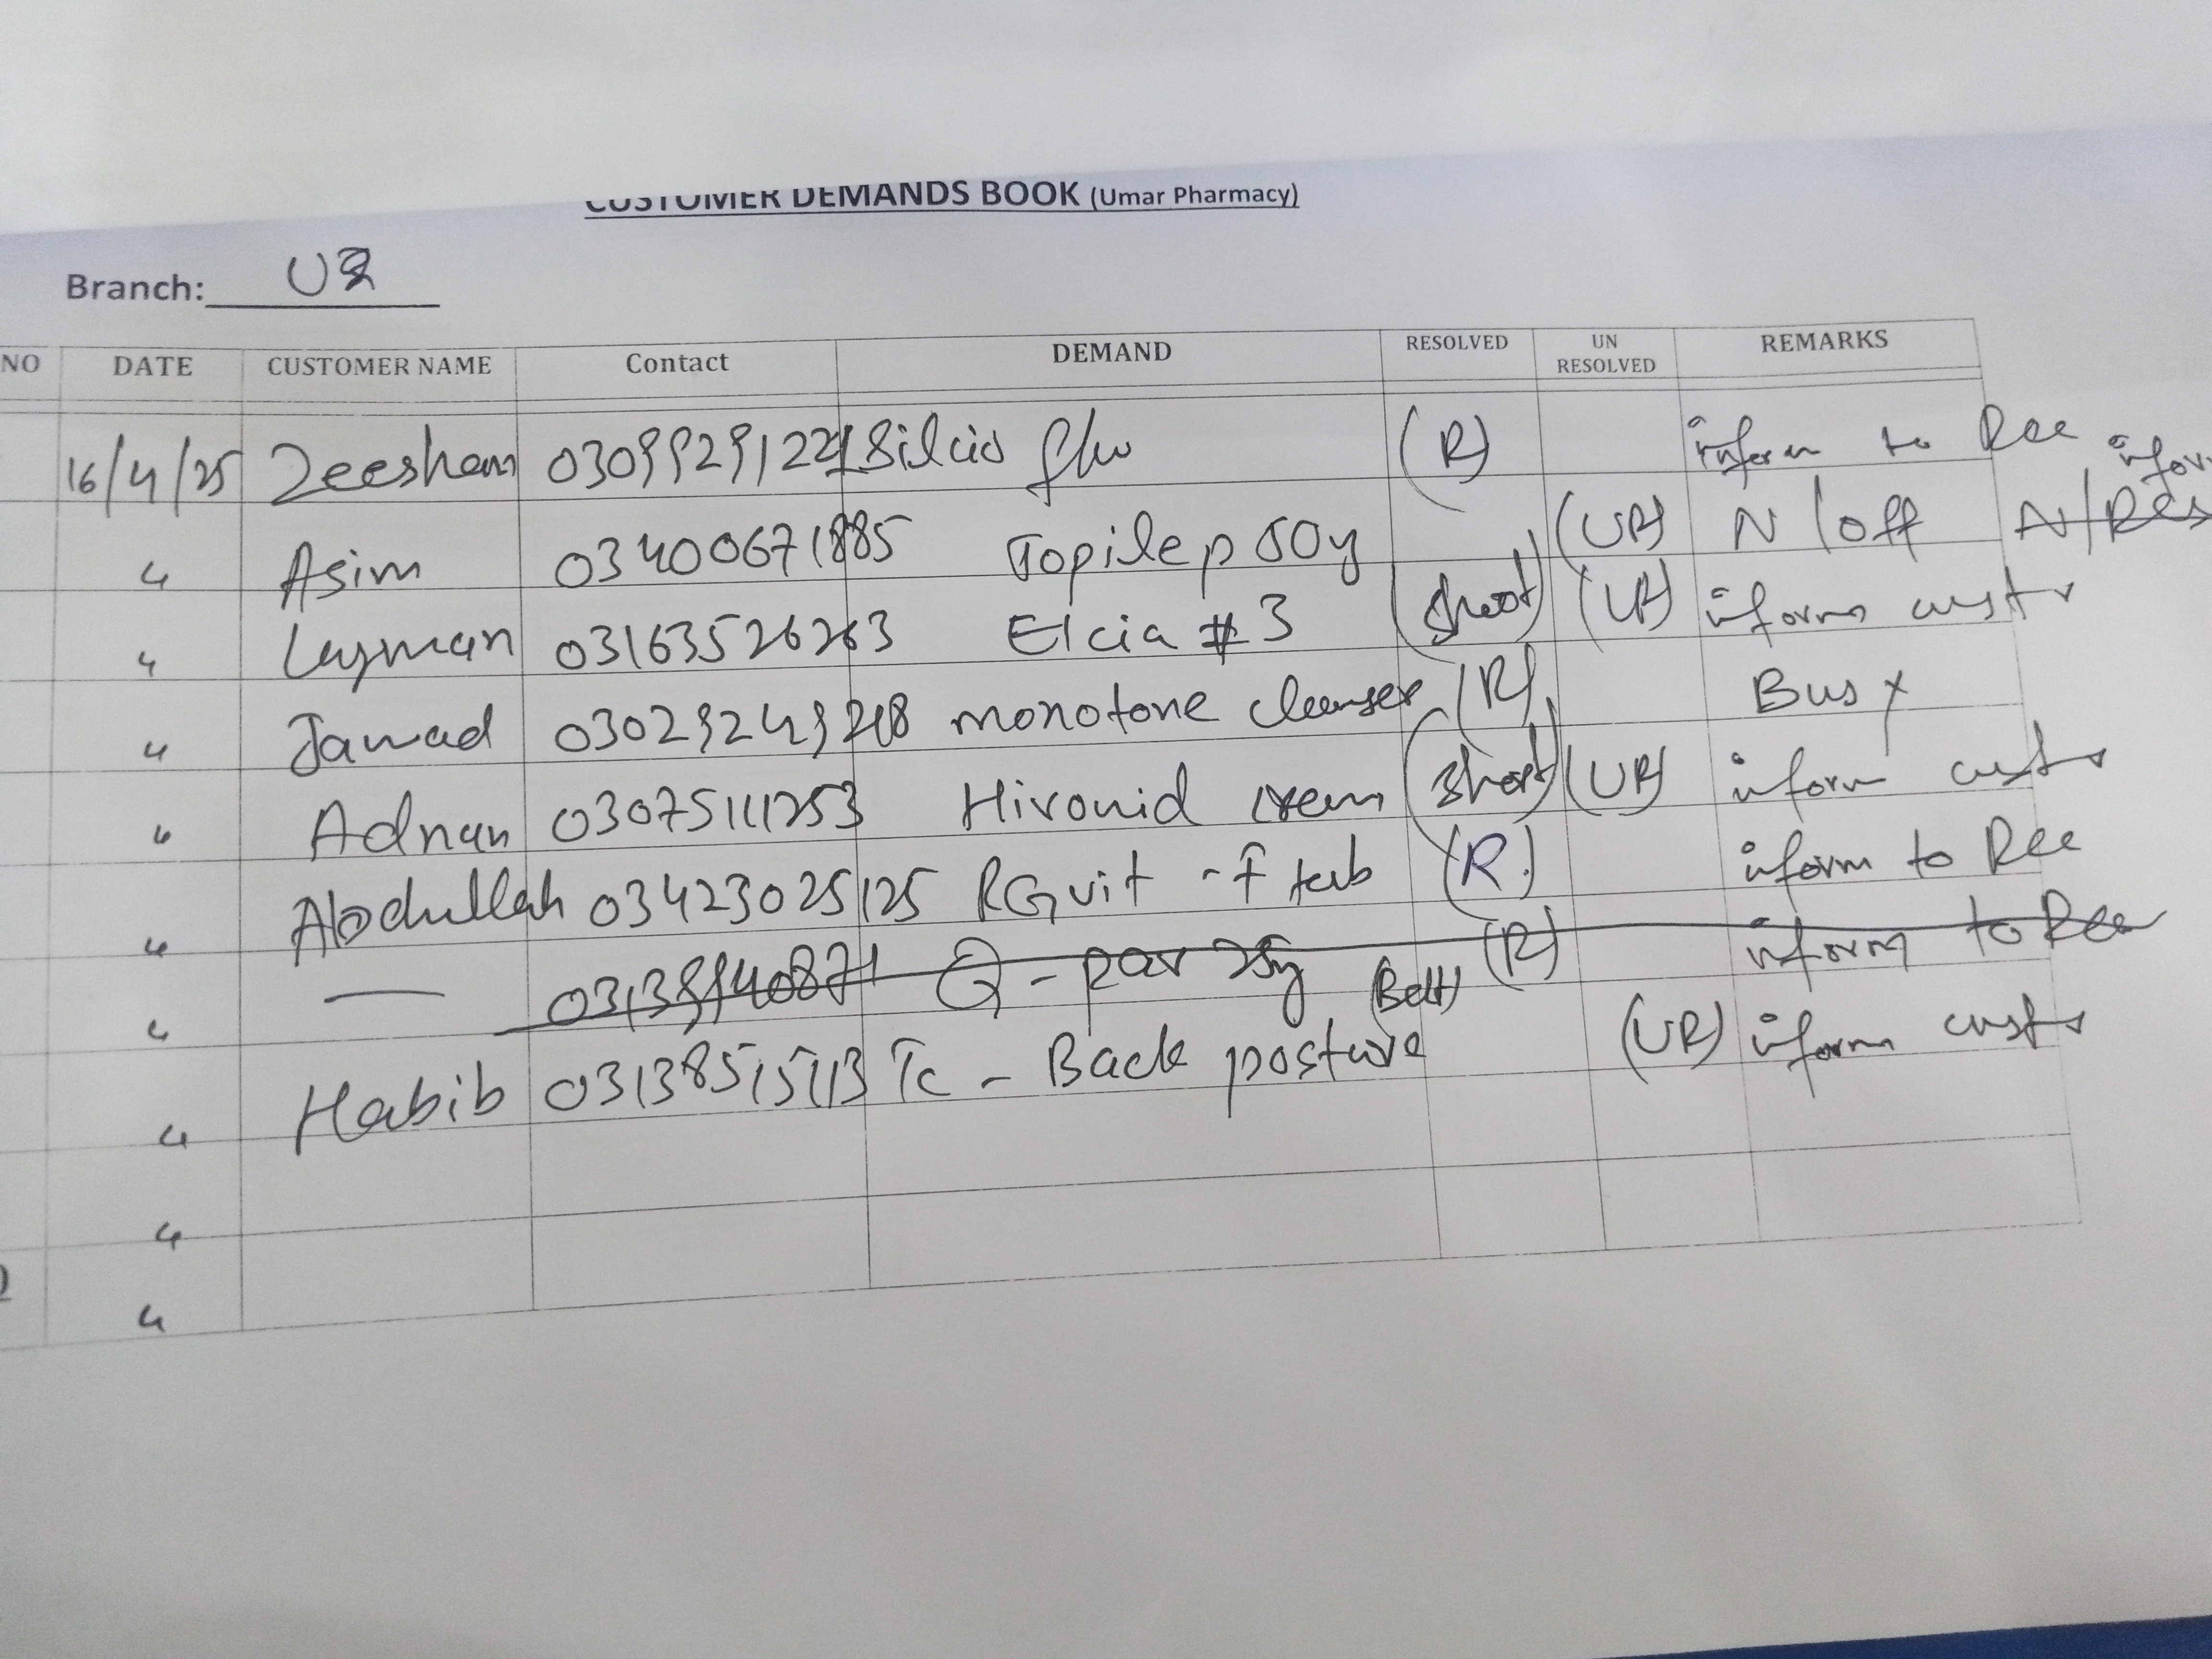 CUSTOMER DEMANDS BOOK (Umar Pharmacy)
Branch: U3
NO DATE CUSTOMER NAME Contact DEMAND RESOLVED UN RESOLVED REMARKS
16/4/25 Zeeshan 03099291221 Silcio (R) inform to Rec
" Asim 03400671885 Topilep 50g (UR) N/off N/Res infor
" Luqman 03163526263 Elcia # 3 (Short) (UR) inform custr
" Jawad monotone cleanser (R) Busy
" Adnan 03075111253 Hivonid cream (Short) (UR) inform custr
" Abdullah 03423025125 RG vit -f tab (R) inform to Rec
" — Q-par 25g (R) inform to Rec
" Habib 03138515113 Tc - Back posture (Belt) (UR) inform custr
"
"